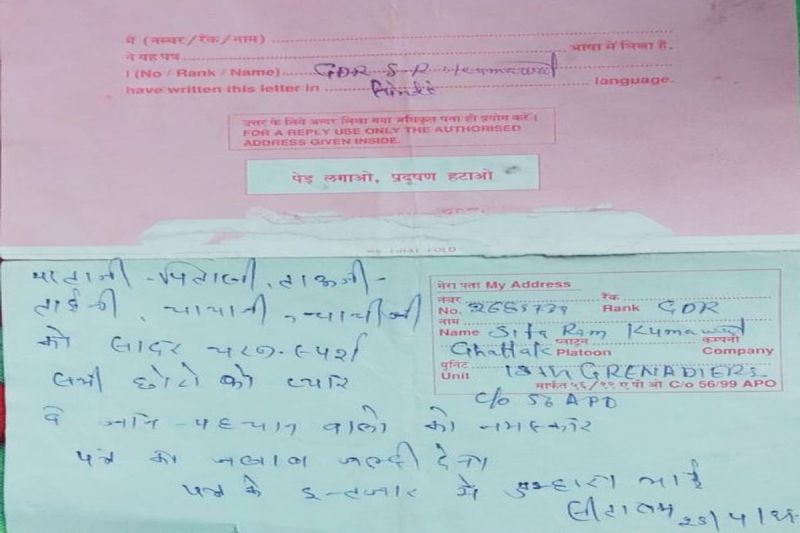 मैं (नम्बर/रैंक/नाम)
ने यह पत्र भाषा में लिखा है.
I (No / Rank / Name) GDR S R Kumawat
have written this letter in language.
उत्तर के लिये अन्दर लिखा गया अधिकृत पता ही प्रयोग करें।
FOR A REPLY USE ONLY THE AUTHORISED
ADDRESS GIVEN INSIDE.
पेड़ लगाओ, प्रदूषण हटाओ
FIRST FOLD
माताजी - पिताजी, ताऊजी -
ताईजी, चाचाजी, चाचीजी
को सादर चरण-स्पर्श
सभी छोटो को प्यार
व जान - पहचान वालो को नमस्कार
पत्र का जवाब जल्दी देना
पत्र के इन्तजार में तुम्हारा भाई
सीताराम
मेरा पता My Address
नंबर रैंक
No. Rank GDR
नाम
Name Sita Ram Kumawat
प्लाटून कम्पनी
Ghattak Platoon Company
युनिट
Unit GRENADIERS
मार्फत ५६/९९ ए पी ओ C/o 56/99 APO
C/o 56 APO